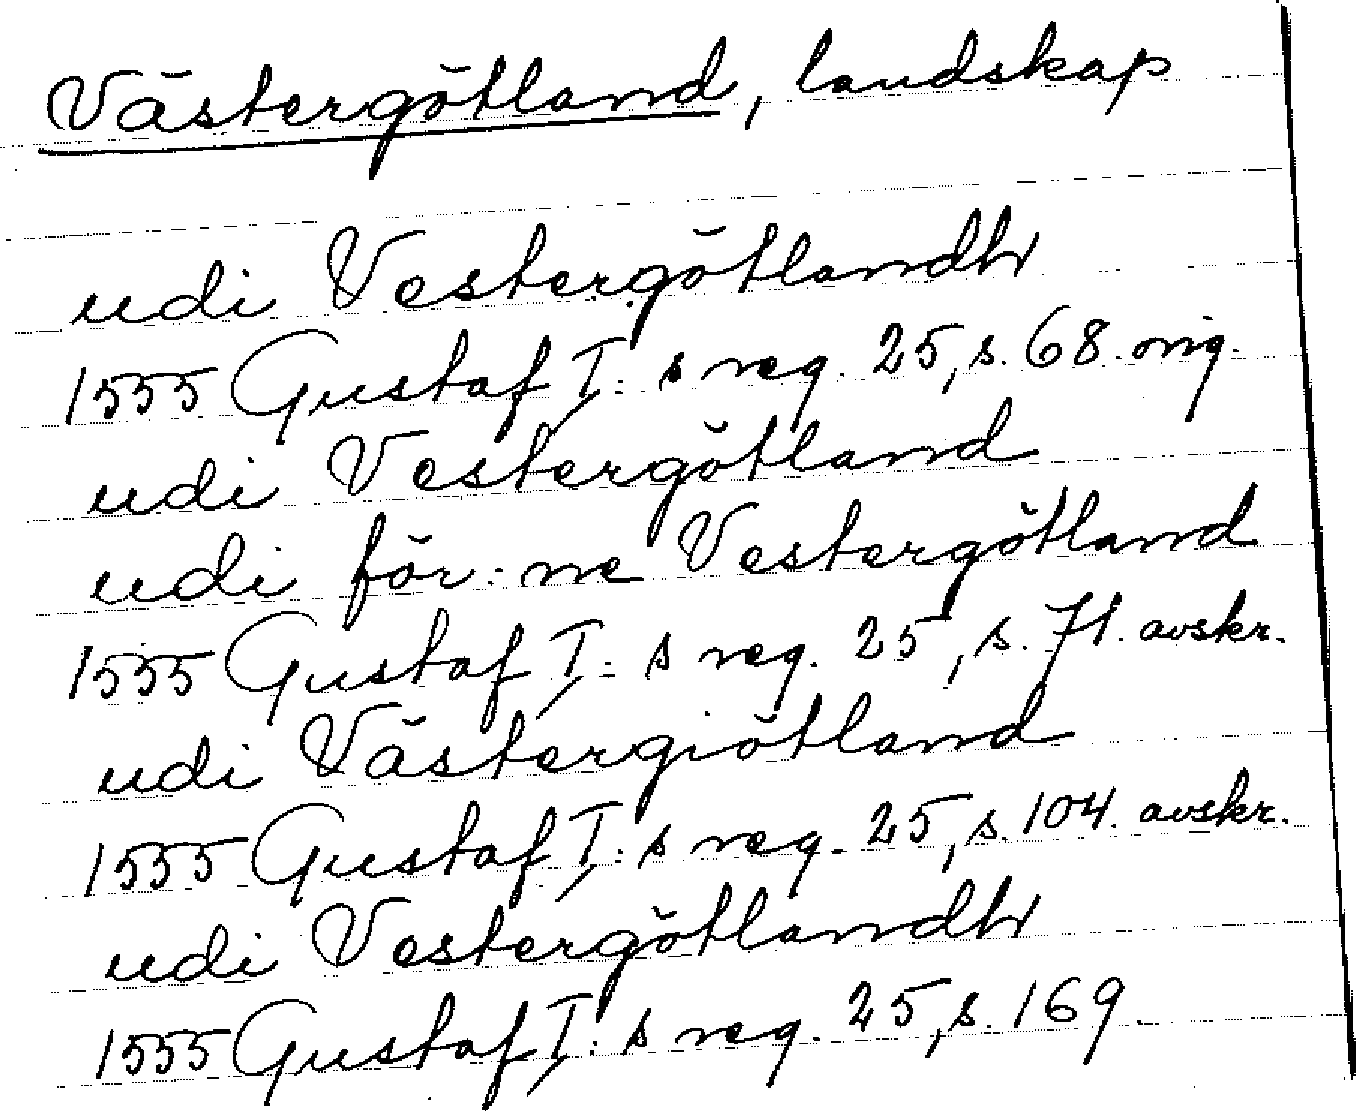 Västergötland, landskap
udi Vestergötlandh
1555 Gustaf I:s reg. 25, s. 68. orig.
udi Vestergötland
udi för:ne Vestergötland
1555 Gustaf I:s reg. 25, s. 71. avskr.
udi Västergiötland
1555 Gustaf I:s reg. 25, s. 104. avskr.
udi Vestergötlandh
1555 Gustaf I:s reg. 25, s. 169.